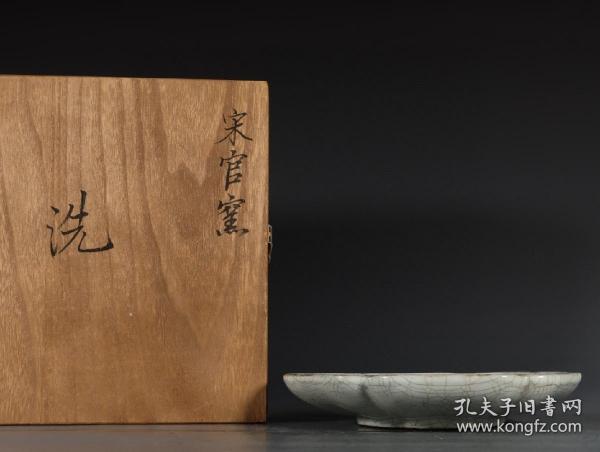 宋官窑
洗
孔夫子旧書网
www.kongfz.com